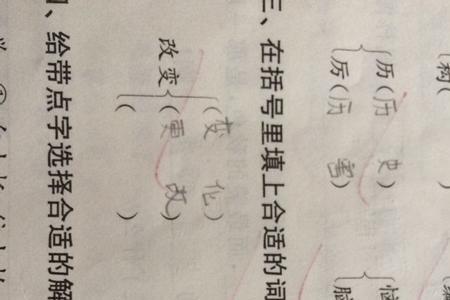 构(   )
历(历 史) 恼
厉(历 害) 脑
三、在括号里填上合适的词
(变 化)
改变 (更 改)
(   )
四、给带点字选择合适的解